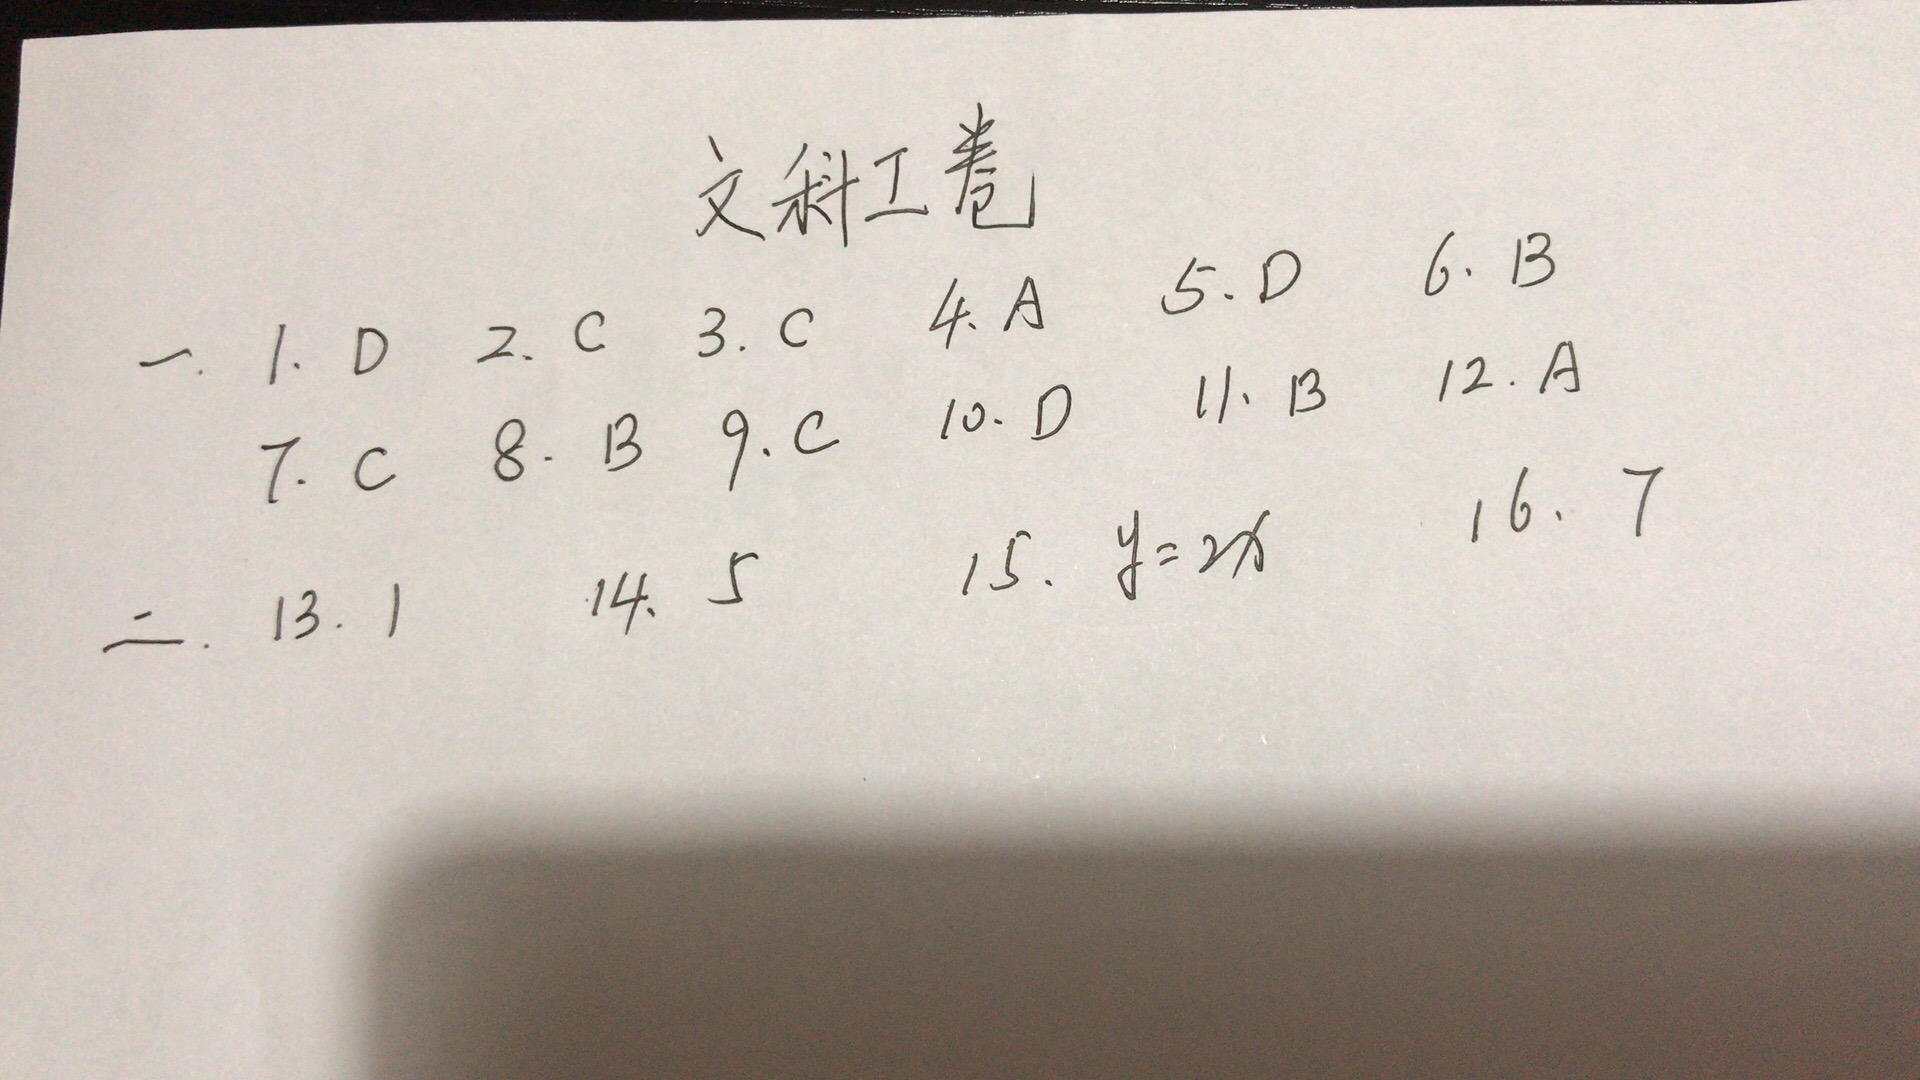 文科工卷
一. 1. D 2. C 3. C 4. A 5. D 6. B
7. C 8. B 9. C 10. D 11. B 12. A
二. 13. 1 14. 5 15. y=2x 16. 7